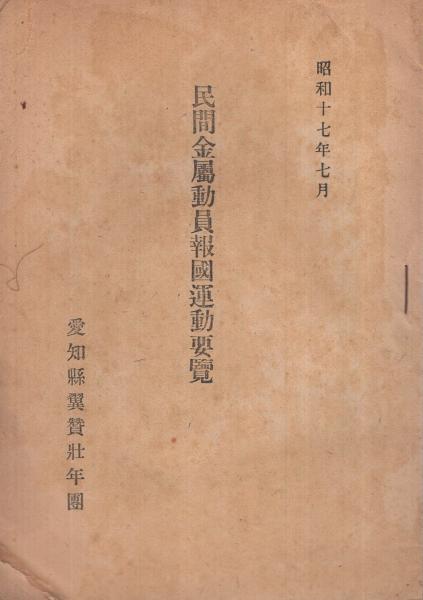 昭和十七年七月
民間金屬動員報國運動要覽
愛知縣翼贊壯年團